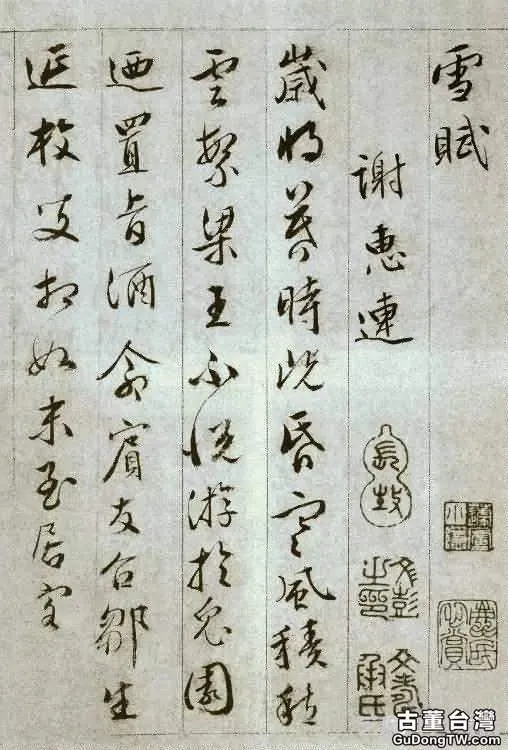 雪賦
謝惠連
歲將暮時既昏寒風積愁
雲繁梁王不悅游於兔園
迺置旨酒命賓友召鄒生
延枚叟相如末至居客
文彭之印
文壽承氏
古董台灣
GuDongTW.com